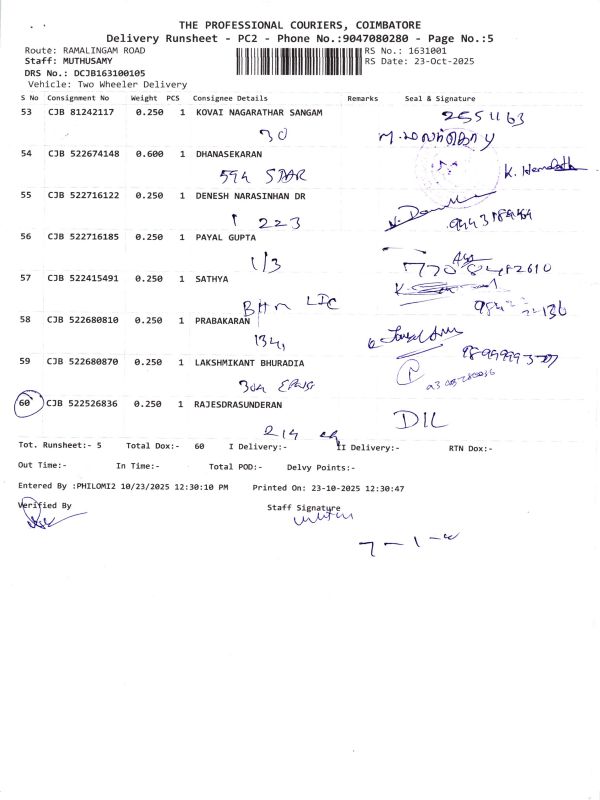 THE PROFESSIONAL COURIERS, COIMBATORE
Delivery Runsheet - PC2 - Phone No.:9047080280 - Page No.:5
Route: RAMALINGAM ROAD RS No.: 1631001
Staff: MUTHUSAMY RS Date: 23-Oct-2025
DRS No.: DCJB163100105
Vehicle: Two Wheeler Delivery
S No Consignment No Weight PCS Consignee Details Remarks Seal & Signature
53 CJB 81242117 0.250 1 KOVAI NAGARATHAR SANGAM
30
54 CJB 522674148 0.600 1 DHANASEKARAN
55 CJB 522716122 0.250 1 DENESH NARASINHAN DR
223
56 CJB 522716185 0.250 1 PAYAL GUPTA
1/3
57 CJB 522415491 0.250 1 SATHYA
LIC
58 CJB 522680810 0.250 1 PRABAKARAN
134,
59 CJB 522680870 0.250 1 LAKSHMIKANT BHURADIA
60 CJB 522526836 0.250 1 RAJESDRASUNDERAN
DIL
Tot. Runsheet:- 5 Total Dox:- 60 I Delivery:- II Delivery:- RTN Dox:-
Out Time:- In Time:- Total POD:- Delvy Points:-
Entered By :PHILOMI2 10/23/2025 12:30:10 PM Printed On: 23-10-2025 12:30:47
Verified By Staff Signature